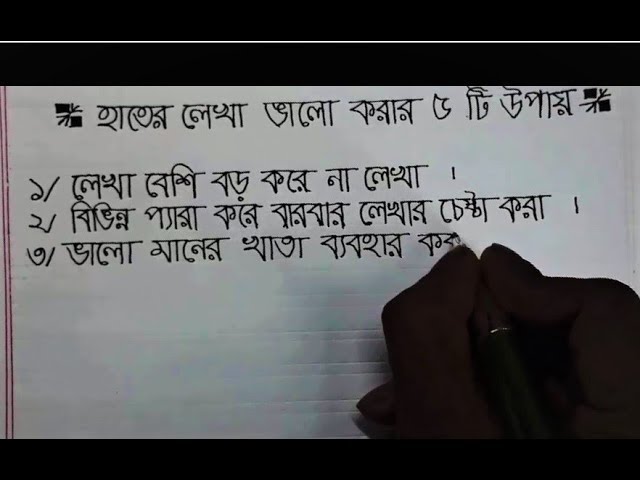 হাতের লেখা ভালো করার ৫ টি উপায়
১/ লেখা বেশি বড় করে না লেখা ।
২/ বিভিন্ন প্যারা করে বারবার লেখার চেষ্টা করা ।
৩/ ভালো মানের খাতা ব্যবহার